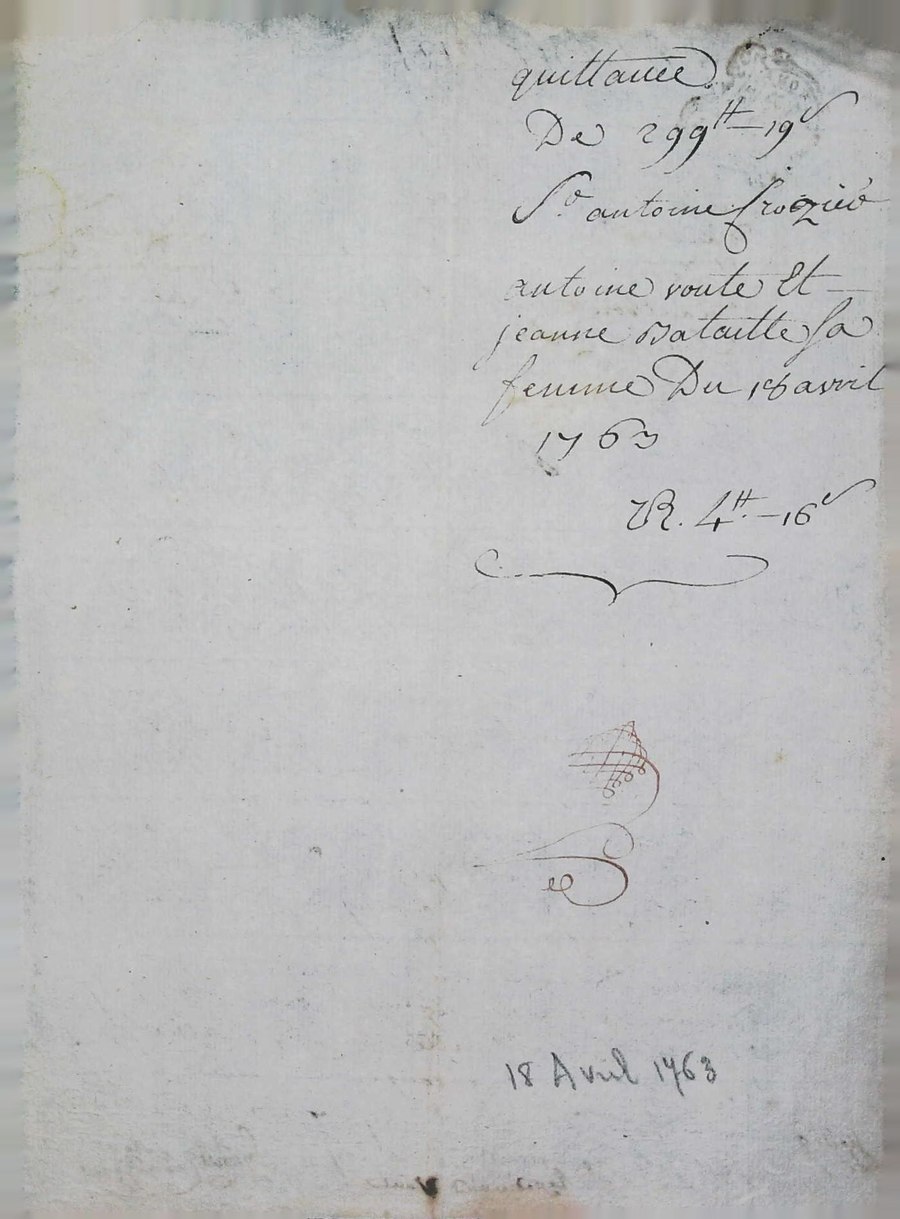 quittance
De 299tt–19s
Sr antoine Crozier
antoine voute Et
jeanne Bataille sa
femme Du 18 avril
1763
R. 4tt.–16s
18 Avril 1763